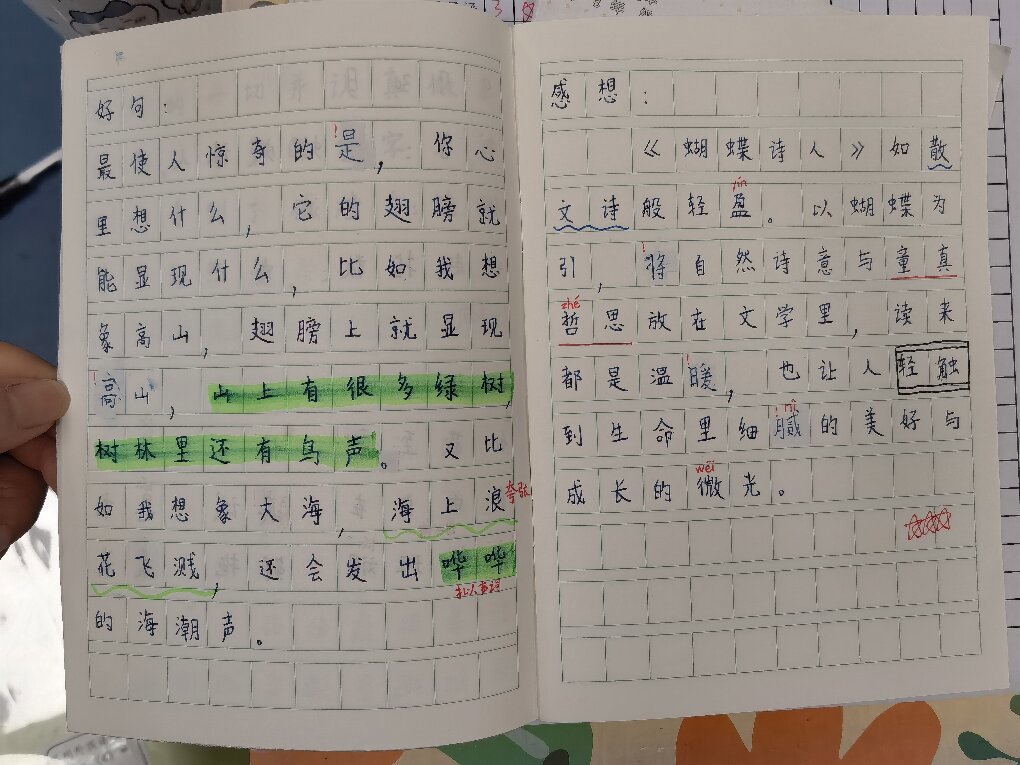 好句：
最使人惊奇的是，你心
里想什么，它的翅膀就
能显现什么，比如我想
象高山，翅膀上就显现
高山，山上有很多绿树，
树林里还有鸟声。又比
如我想象大海，海上浪
夸张
花飞溅，还会发出哗哗
的海潮声。
感想：
《蝴蝶诗人》如散
yín
文诗般轻盈。以蝴蝶为
引，将自然诗意与童真
zhé
哲思放在文学里，读来
都是温暖，也让人轻触
nì
到生命里细腻的美好与
wēi
成长的微光。